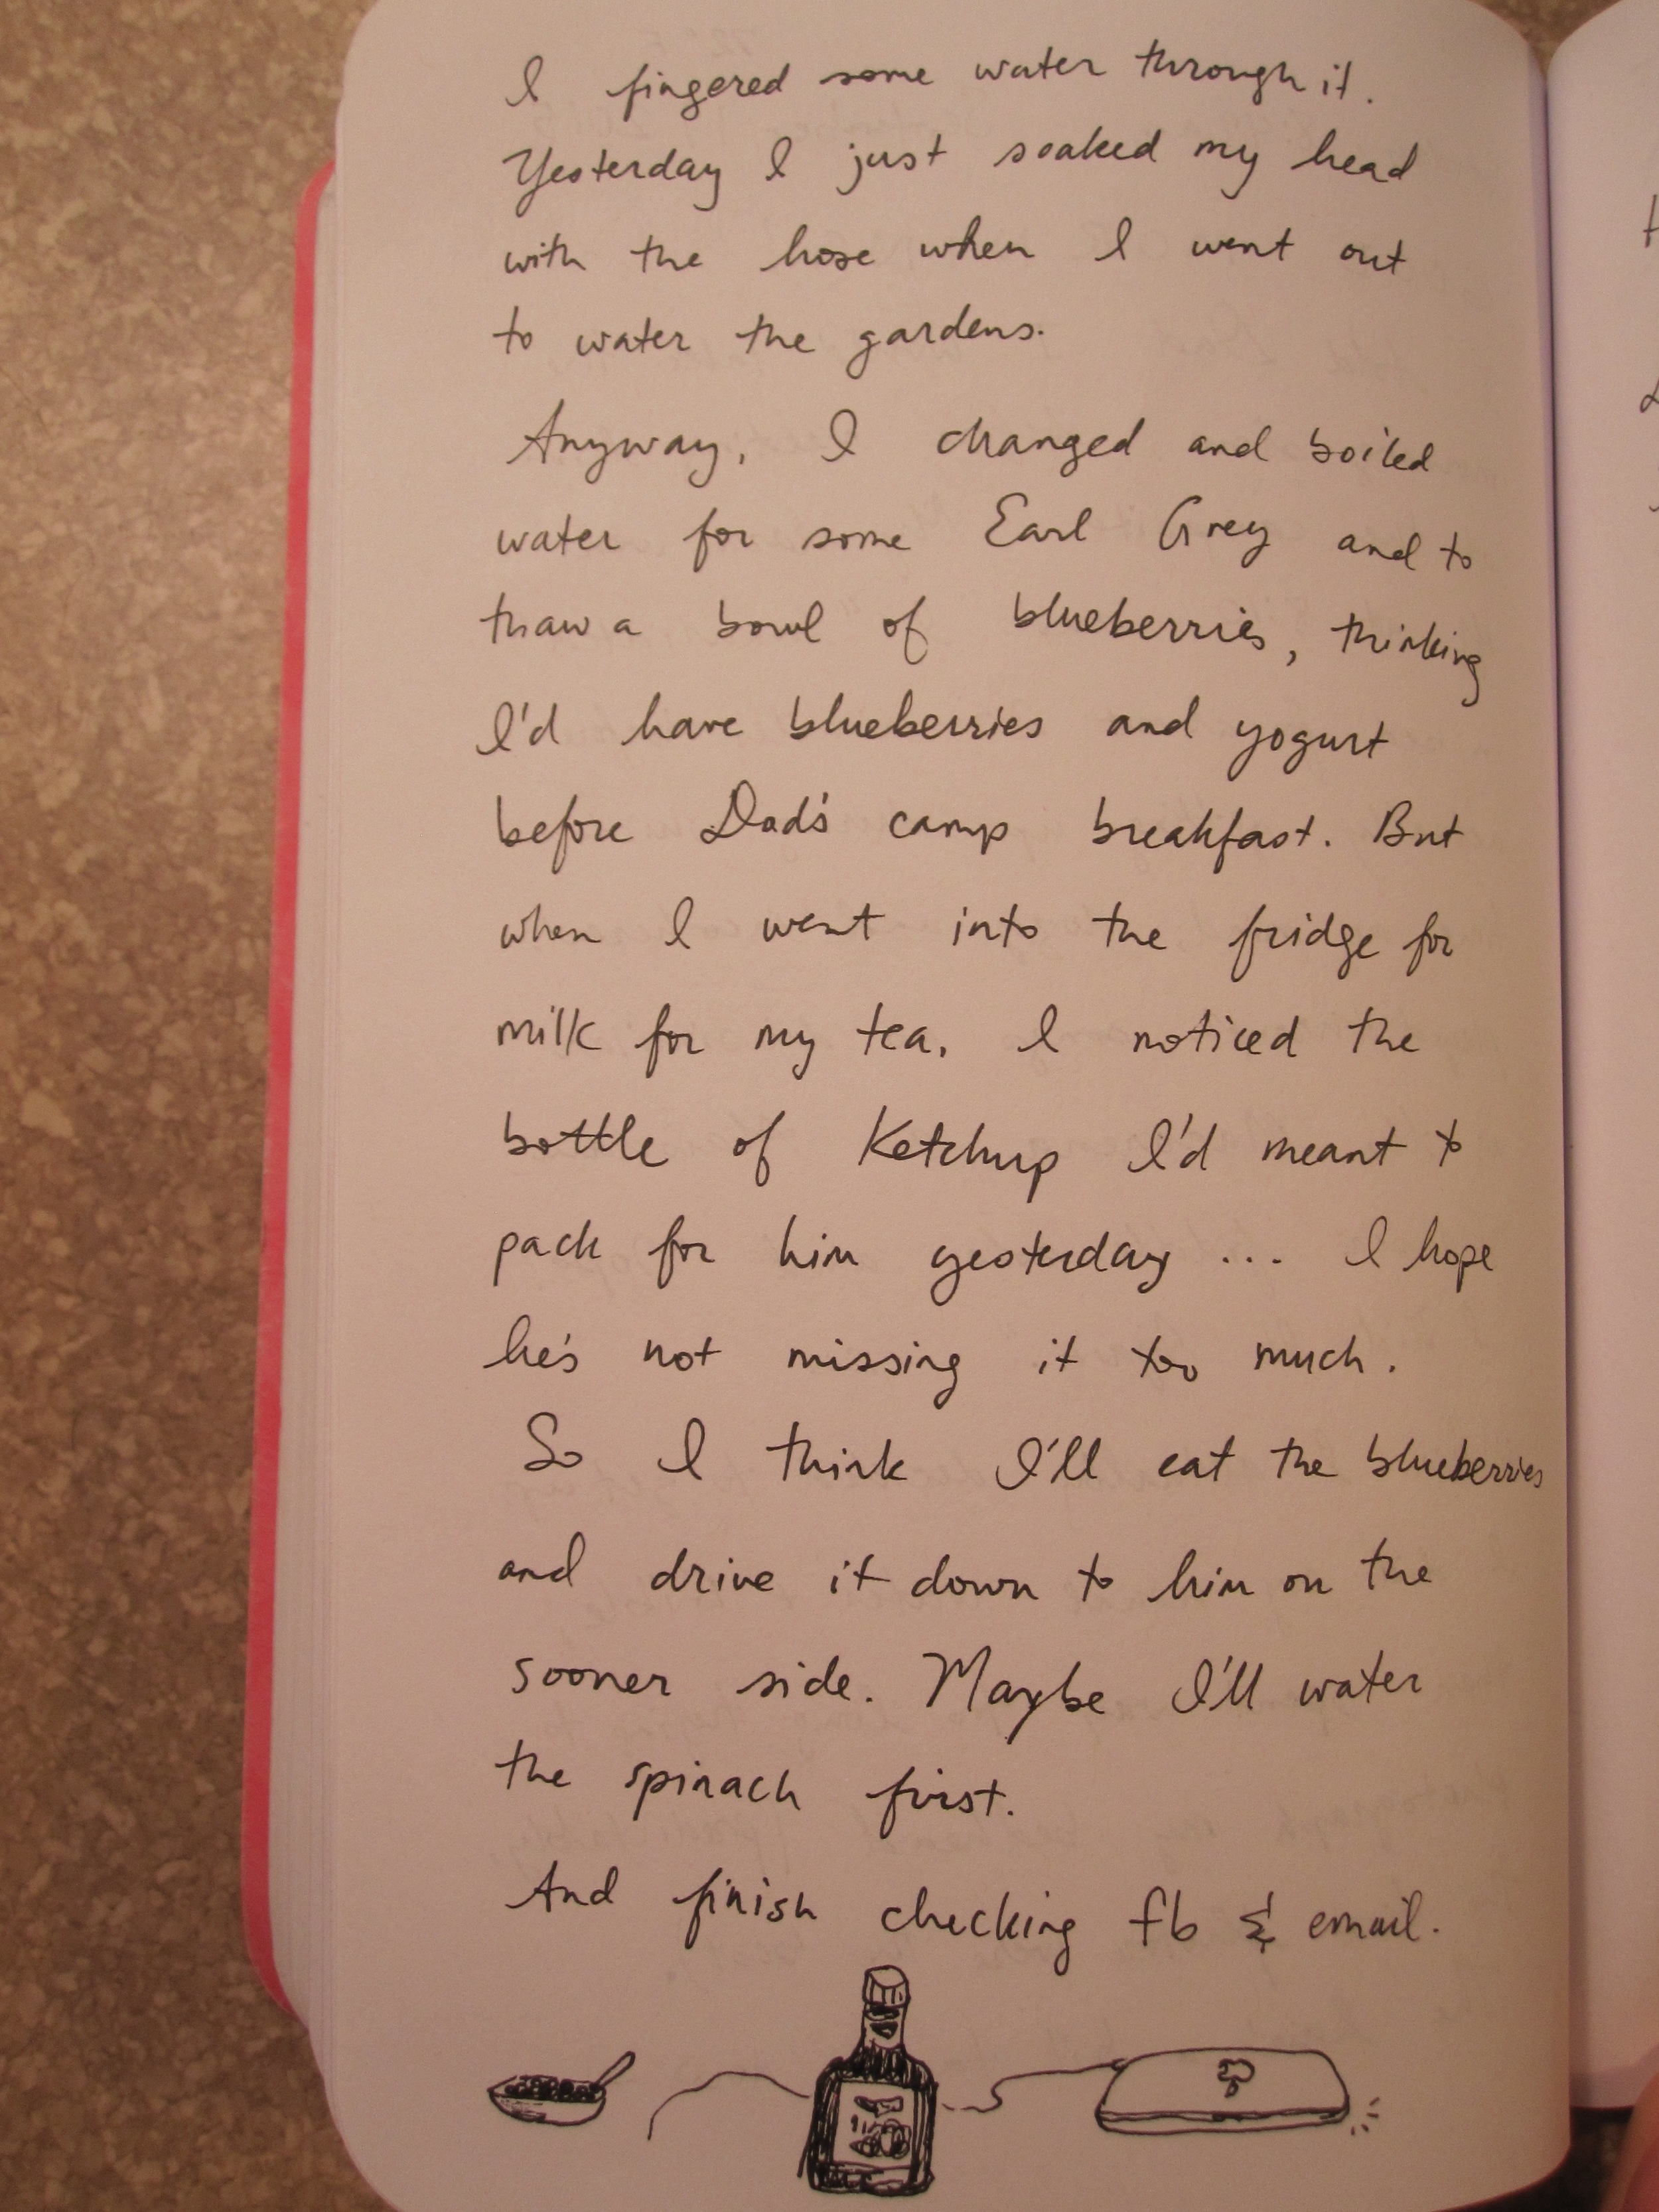 I fingered some water through it.
Yesterday I just soaked my head
with the hose when I went out
to water the gardens.
Anyway, I changed and boiled
water for some Earl Grey and to
thaw a bowl of blueberries, thinking
I'd have blueberries and yogurt
before Dad's camp breakfast. But
when I went into the fridge for
milk for my tea, I noticed the
bottle of Ketchup I'd meant to
pack for him yesterday ... I hope
he's not missing it too much.
So I think I'll eat the blueberries
and drive it down to him on the
sooner side. Maybe I'll water
the spinach first.
And finish checking fb & email.